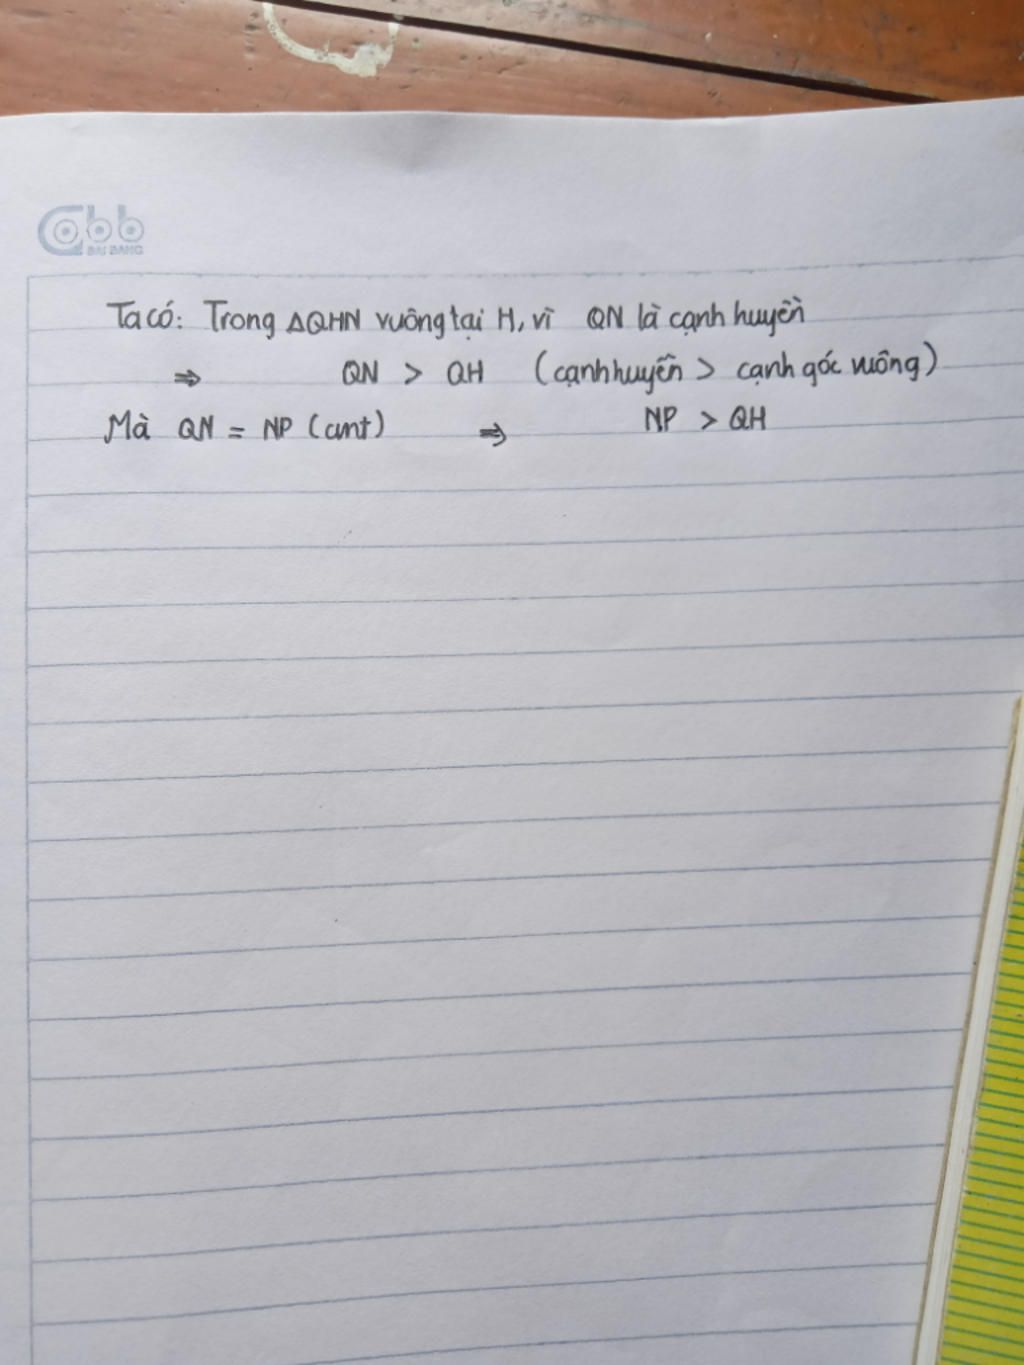 Cabb
BAI BANG
Ta có: Trong ΔQHN vuông tại H, vì QN là cạnh huyền
⇒ QN > QH (cạnh huyền > cạnh góc vuông)
Mà QN = NP (cmt) ⇒ NP > QH